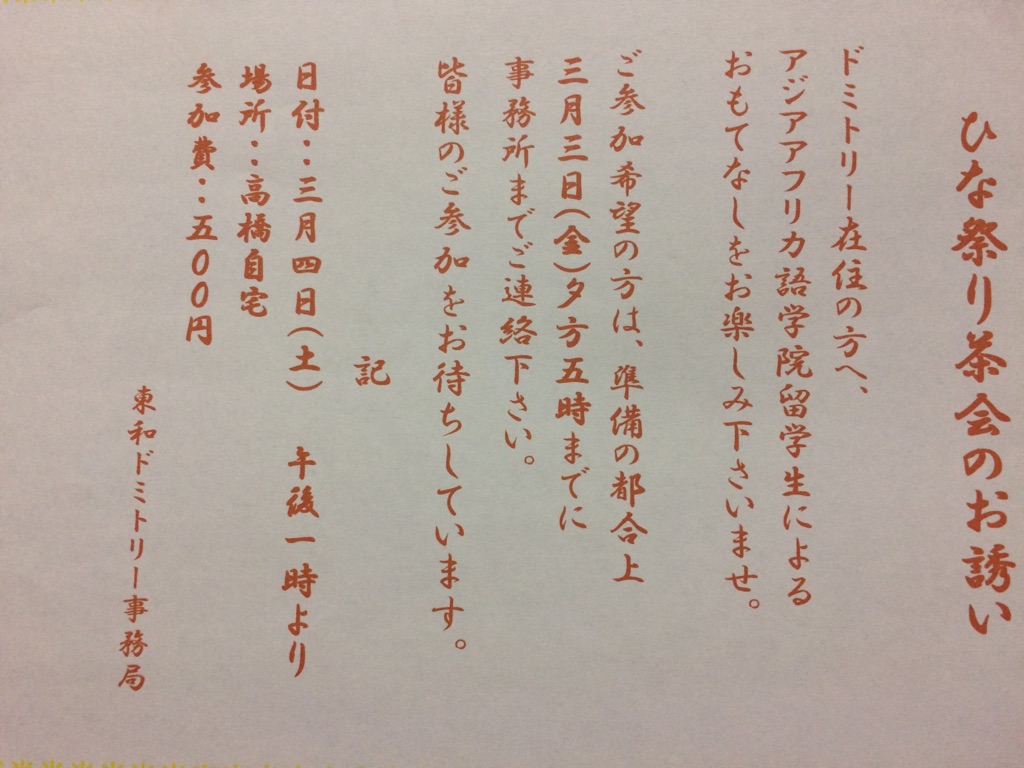 ひな祭り茶会のお誘い
ドミトリー在住の方へ、
アジアアフリカ語学院留学生による
おもてなしをお楽しみ下さいませ。
ご参加希望の方は、準備の都合上
三月三日(金)夕方五時までに
事務所までご連絡下さい。
皆様のご参加をお待ちしています。
記
日付：三月四日(土)　午後一時より
場所：高橋自宅
参加費：五００円
東和ドミトリー事務局